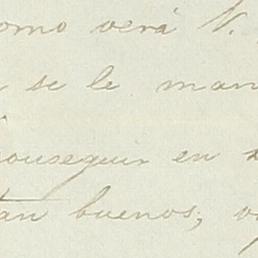 como verá V.
se le man
conseguir en
tan buenos,